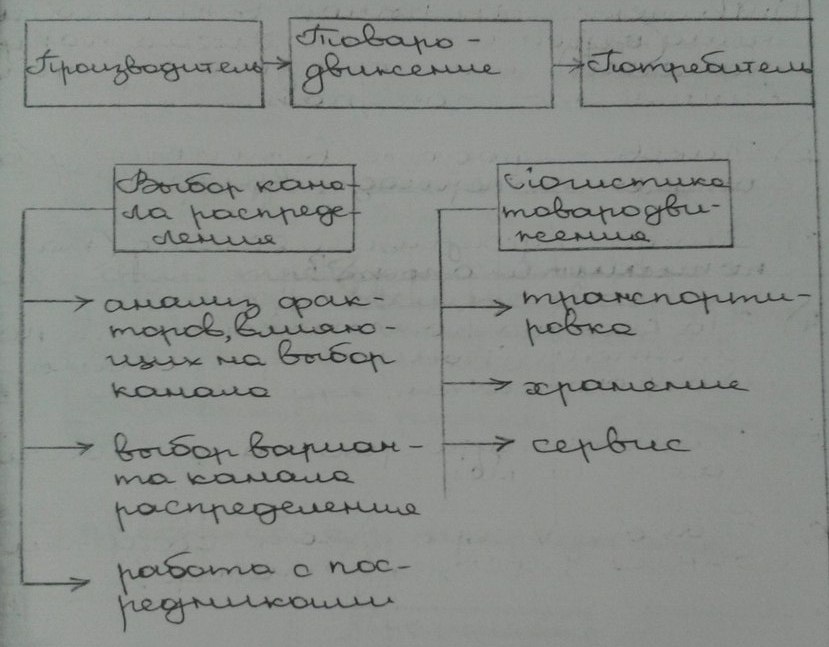 Производитель
Товаро-
движение
Потребитель
Выбор кана-
ла распреде-
ления
анализ фак-
торов, влияю-
щих на выбор
канала
выбор вариан-
та канала
распределения
работа с пос-
редниками
Логистика
товародви-
жения
транспорти-
ровка
хранение
сервис